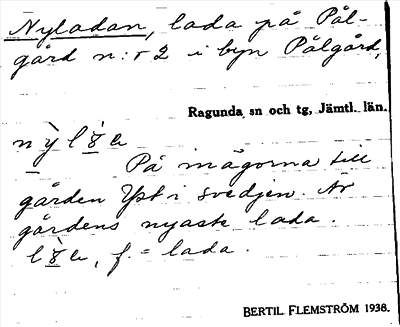 Nyladan, lada på Pål-
gård n:r 2 i byn Pålgård,
Ragunda sn och tg, Jämtl. län.
På mågorna till
gården Yst i svedjen. Är
gårdens nyaste lada.
f. = lada.
BERTIL FLEMSTRÖM 1938.